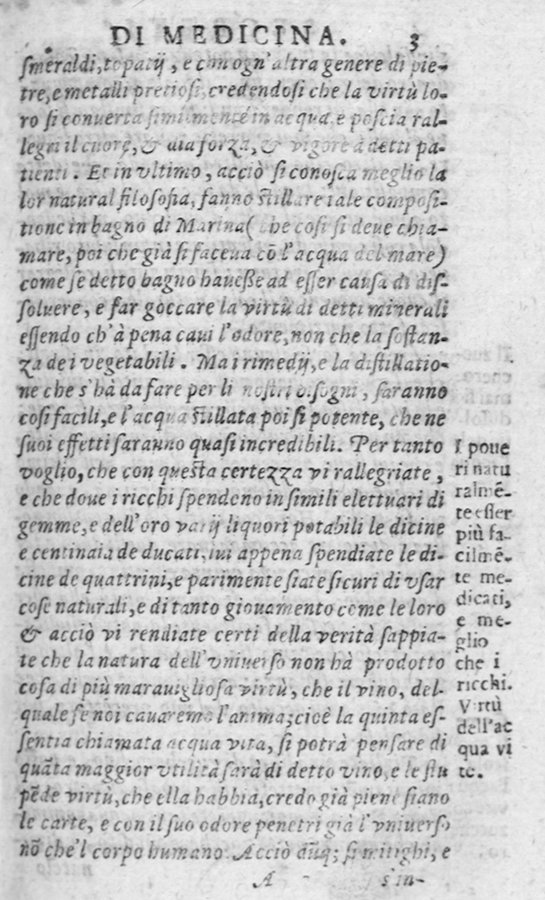 DI MEDICINA. 3
smeraldi, topatij, e con ogn'altra genere di pie-
tre, e metalli pretiosi, credendosi che la virtù lo-
ro si conuerta similmente in acqua, e poscia ral-
legri il cuore, & dia forza, & vigore à detti pa-
tienti. Et in vltimo, acciò si conosca meglio la
lor natural filosofia, fanno stillare tale composi-
tione in bagno di Marina (che così si deue chia-
mare, poi che già si faceua cō l'acqua del mare)
come se detto bagno hauesse ad esser causa di dis-
soluere, e far goccare la virtù di detti minerali
essendo ch'à pena caui l'odore, non che la sostan-
za de i vegetabili. Ma i rimedij, e la distillatio-
ne che s'hà da fare per li nostri bisogni, saranno
così facili, e l'acqua stillata poi sì potente, che ne
suoi effetti saranno quasi incredibili. Per tanto
voglio, che con questa certezza vi rallegriate,
e che doue i ricchi spendeno in simili elettuari di
gemme, e dell'oro varij liquori potabili le dicine
e centinaia de ducati, uui appena spendiate le di-
cine de quattrini, e parimente siate sicuri di vsar
cose naturali, e di tanto giouamento come le loro
& acciò vi rendiate certi della verità sappia-
te che la natura dell'vniuerso non hà prodotto
cosa di più marauigliosa virtù, che il vino, del-
quale se noi cauaremo l'anima; cioè la quinta es-
sentia chiamata acqua vita, si potrà pensare di
quāta maggior vtilità sarà di detto vino, e le stu
pēde virtù, che ella habbia, credo già piene siano
le carte, e con il suo odore penetri già l'vniuerso
nō che'l corpo humano. Acciò aūq; si mitighi, e
A sin-
I poue
ri natu
ralmē-
te esser
più fa-
cilmē-
te me-
dicati,
e me-
glio
che i
ricchi.
Virtù
dell'ac
qua vi
te.